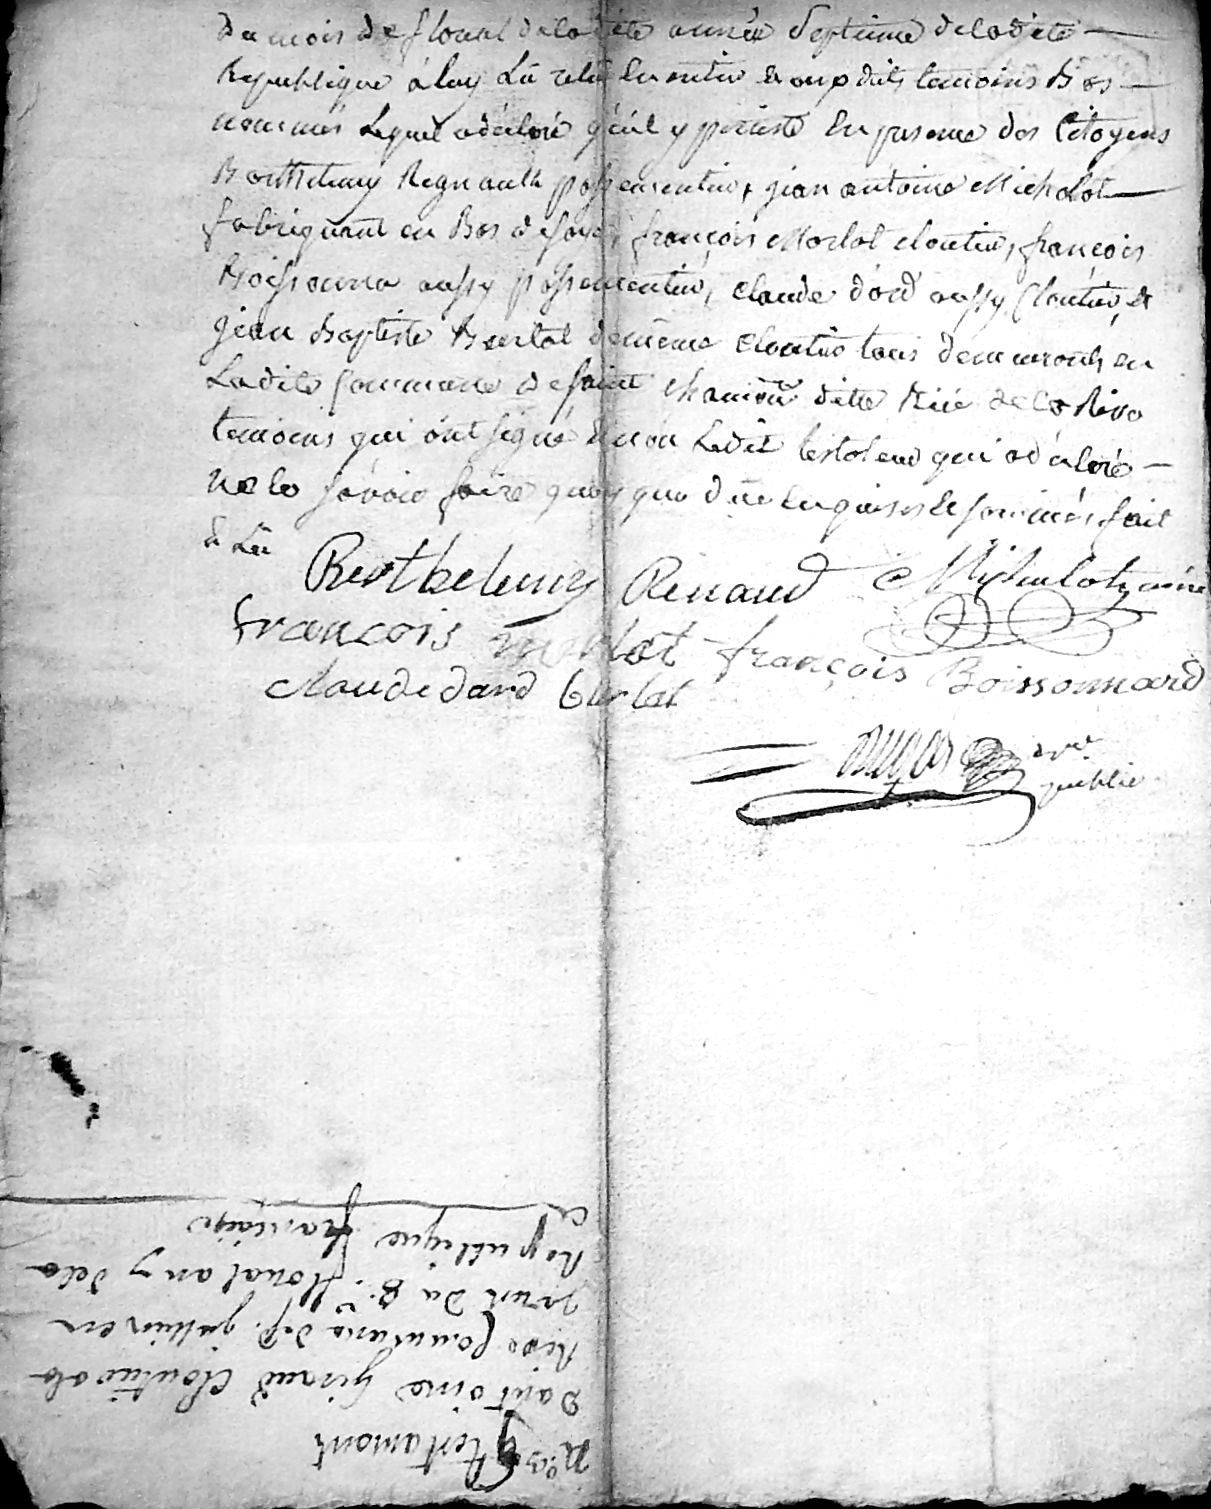 du mois de floreal de la dite année Septieme de la dite
Republique à luy Lû relû en entier et aux dits temoins
nommés Lequel a déclaré qu'il y persiste En presence des Citoyens
Barthelemy Regnault passementier, jean antoine Micholot
fabriquant en Bas de soye, françois Morlot cloutier, françois
Boissonna aussy passementier, claude dord aussy Cloutier, et
jean Baptiste Burlat de même cloutier tous demeurants en
Ladite Commune de saint chamon ditte Rive
temoins qui ônt signé & non Ledit testateur qui a déclaré
ne le sçavoir faire quoy que düe Enquis et sommé, fait
& Lû
Berthelemy Renaud Micholot ainé
françois morlot françois Boissonnard
claude dard burlat
dugas nre
public
No. 3 testament
D'antoine Giraud Cloutier a la
Rive Commune de st. jullien en
jarret du 8e. floreal an 7 de la
Republique française